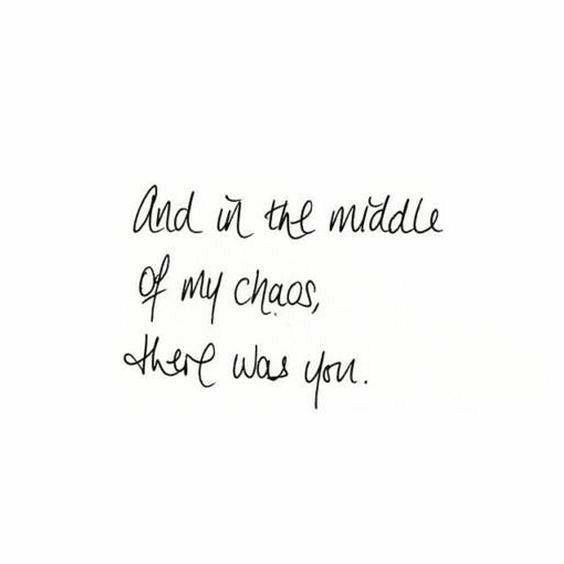 And in the middle
of my chaos,
there was you.